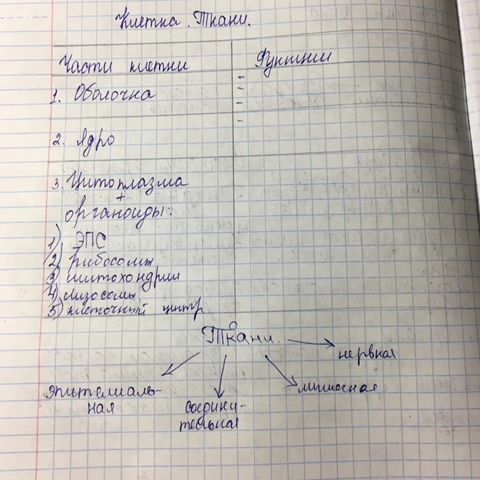 Клетка. Ткани.
Части клетки Функции
1. Оболочка
-
-
-
-
2. Ядро
3. Цитоплазма
+
органоиды:
1) ЭПС
2) рибосомы
3) митохондрии
4) лизосомы
5) клеточный центр
Ткани
нервная
эпителиаль-
ная
соедини-
тельная
мышечная